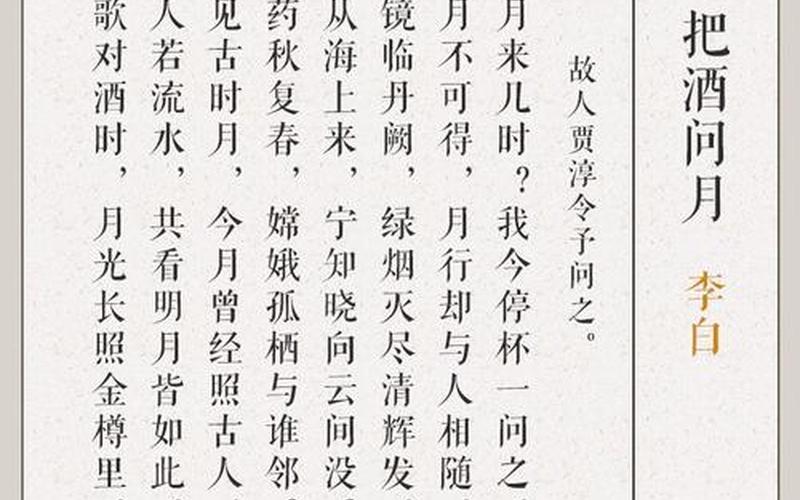 把酒问月
李白
故人贾淳令予问之。
月来几时？我今停杯一问之
月不可得，月行却与人相随
镜临丹阙，绿烟灭尽清辉发
从海上来，宁知晓向云间没
药秋复春，嫦娥孤栖与谁邻
见古时月，今月曾经照古人
人若流水，共看明月皆如此
歌对酒时，月光长照金樽里